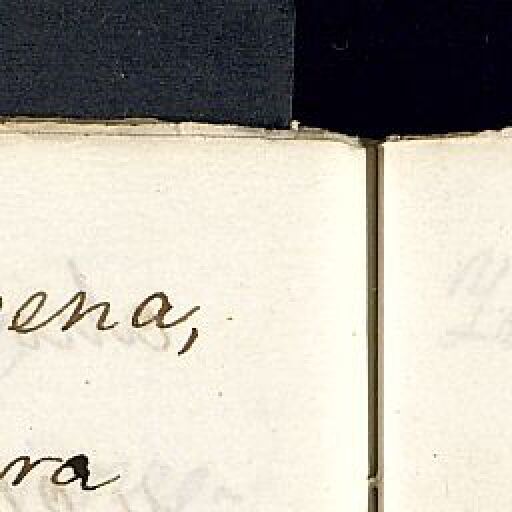 ena,
ra